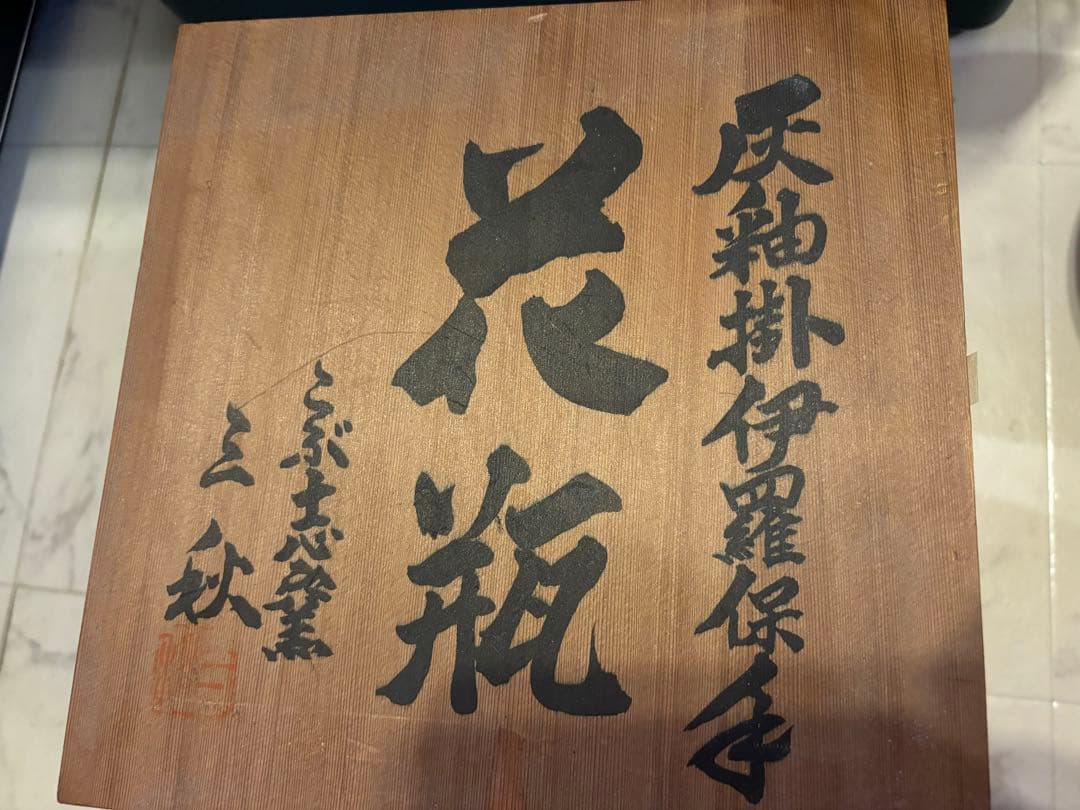 灰釉掛伊羅保手
花瓶
こぶ志窯
三秋